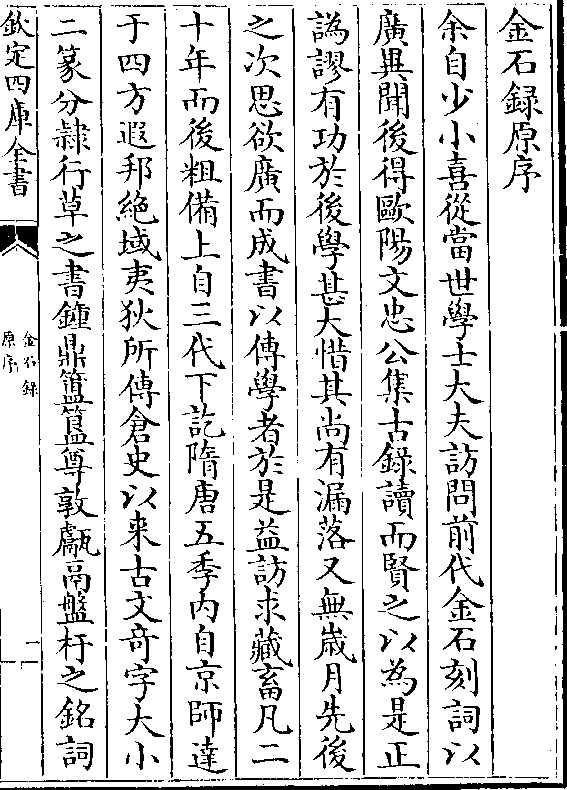 金石録原序
余自少小喜從當世學士大夫訪問前代金石刻詞以
廣異聞後得歐陽文忠公集古錄讀而賢之以為是正
譌謬有功於後學甚大惜其尚有漏落又無歲月先後
之次思欲廣而成書以傳學者於是益訪求藏畜凡二
十年而後粗備上自三代下訖隋唐五季内自京師達
于四方遐邦絶域夷狄所傳倉史以来古文奇字大小
二篆分隷行草之書鍾鼎簠簋尊敦甗鬲盤杅之銘詞
欽定四庫全書
金石録
原序
一